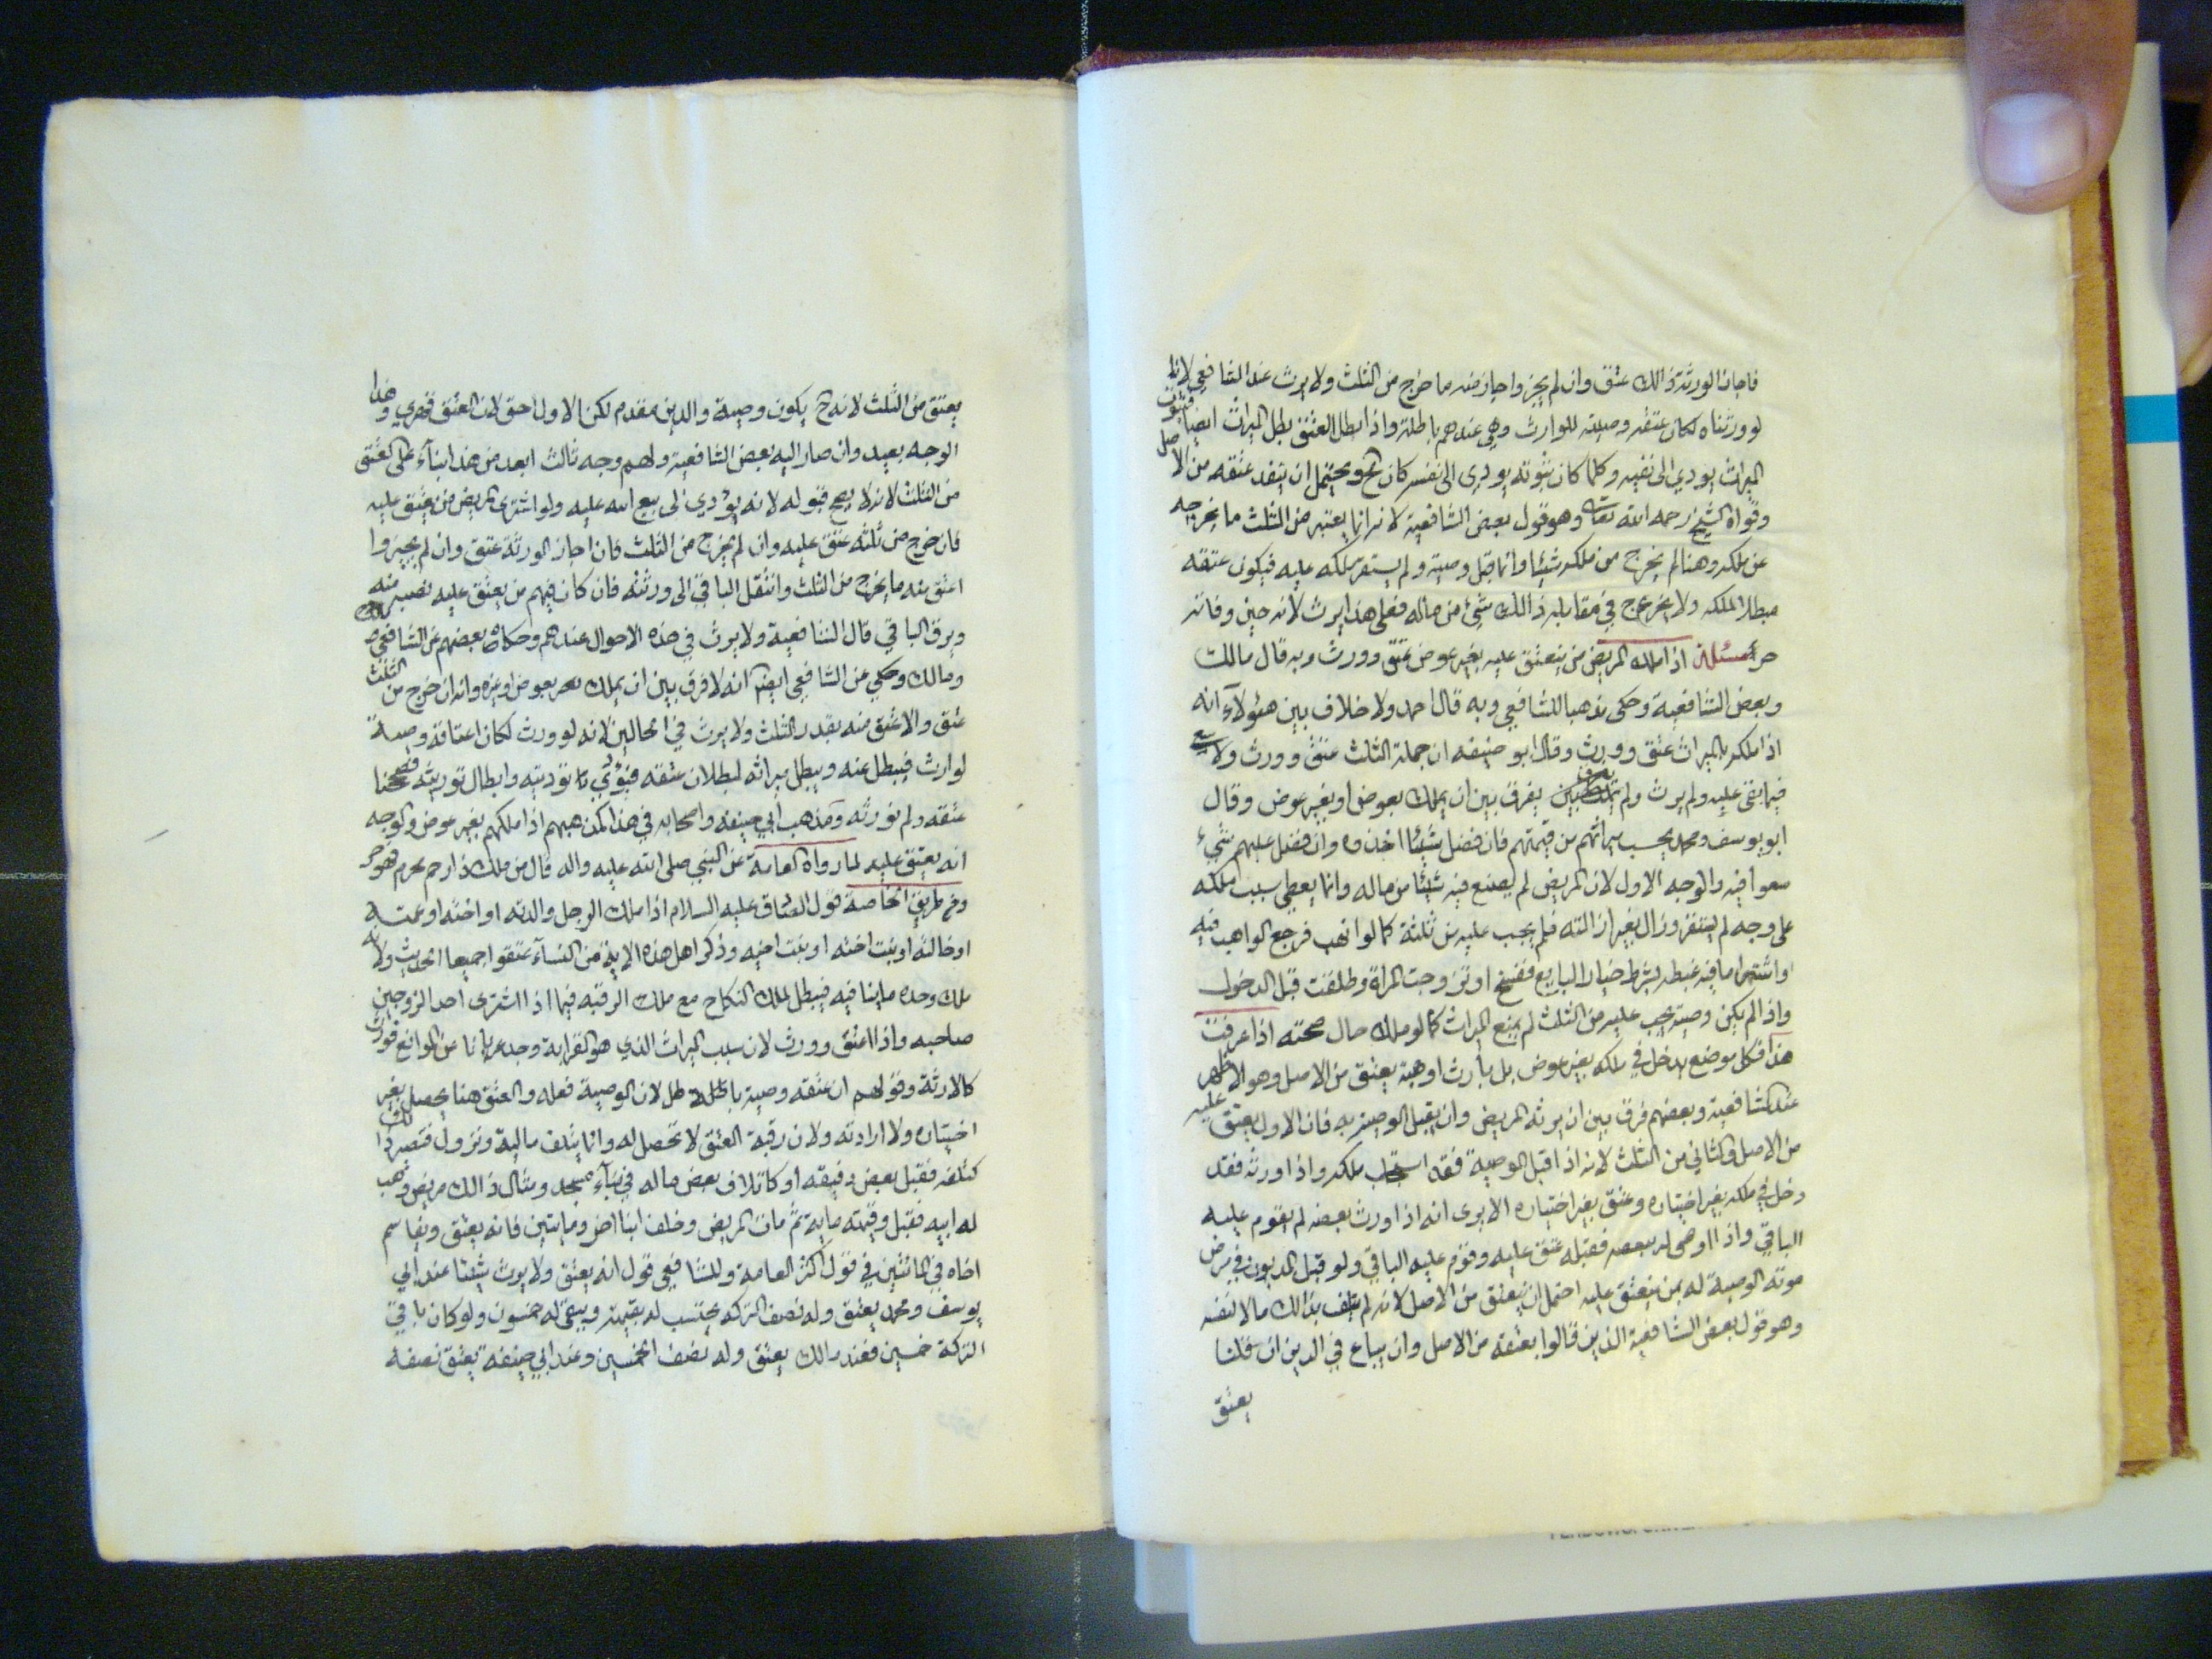 فاجاز الورثة ذالك عتق وان لم يجيزوا جاز منه ما خرج من الثلث ولا يرث عند الشافعي لانا
لو ورثناه لكان عتقه وصية للوارث وهي عندهم باطلة واذا بطل العتق بطل الميراث ايضا فثبوت
الميراث يودي الى نفيه وكلما كان ثبوته يودى الى نفسه كان مح ويحتمل ان ينفذ عتقه من الاصل
وقواه الشيخ رحمه الله تعالى وهو قول بعض الشافعية لانه انما يعتبر من الثلث ما يخرجه
عن ملكه وهنا لم يخرج من ملكه شيئا وانما قبل وصية ولم يستقر ملكه عليه فيكون عتقه
مبطلا لملكه ولا يخرج في مقابله ذالك شئ من ماله فعلى هذا يرث لانه حين وفاته
حر مسئلة اذا ملك المريض من ينعتق عليه بغير عوض عتق وورث وبه قال مالك
وبعض الشافعية وحكى مذهبا للشافعي وبه قال احمد ولا خلاف بين هؤلاء انه
اذا ملكه بالميراث عتق وورث وقال ابو حنيفه ان حمله الثلث عتق وورث ولا سعي
فيما بقى عليه ولم يرث ولم يفرق بين ان يملك بعوض او بغير عوض وقال
ابو يوسف ومحمد يحسب ميراثهم من قيمتهم فان فضل شيئا اخذوه وان فضل عليهم شيء
سعوا فيه والوجه الاول لان المريض لم يصنع فيه شيئا من ماله وانما يعطي سبب ملكه
على وجه لم يستقر وزال بغير ازالته فلم يحسب عليه من ثلثه كما لو اتهب فرجع الواهب فيه
او اشترى ما فيه غبطه بشرط خيار البايع ففسخ او تزوجت المراة وطلقت قبل الدخول
واذا لم يكن وصية يجب عليه من الثلث لم يمنع الميراث كما لو ملك حال صحته اذا عرفت
هذا فكل موضع يدخل في ملكه بغير عوض بل بارث او هبة يعتق من الاصل وهو الاظهر
عند الشافعية وبعضهم فرق بين ان يرثه المريض وان يقبل الوصية به فان الاول يعتق عليه
من الاصل والثاني من الثلث لانه اذا قبل الوصية فقد استجلب ملكه واذا ورثه فقد
دخل في ملكه بغير اختياره وعتق بغير اختياره الا يرى انه اذا ورث بعضه لم يقوم عليه
الباقي واذا اوصى له ببعضه فقبله عتق عليه وقوم عليه الباقي ولو قبل المديون في مرض
موته الوصية له بمن ينعتق عليه احتمل ان ينعتق من الاصل لانه لم يتلف بذالك مالا لنفسه
وهو قول بعض الشافعية الذين قالوا بعتقه من الاصل وان يباع في الدين ان قلنا
يعتق
يعتق من الثلث لانه ح يكون وصية والدين مقدم لكن الاول احق لان العتق قهري وهذا
الوجه بعيد وان صار اليه بعض الشافعية ولهم وجه ثالث ابعد من هذا بناء على العتق
من الثلث لانه لا يصح قبوله لانه يؤدي الى بيع ابنه عليه ولو اشترى المريض من يعتق عليه
فان خرج من ثلثه عتق عليه وان لم يخرج من الثلث فان اجاز الورثة عتق وان لم يجيزوا
اعتق منه ما يخرج من الثلث وانتقل الباقي الى ورثته فان كان فيهم من يعتق عليه نصيبه منه
ويرق الباقي قال الشافعية ولا يرث في هذه الاحوال عندهم وحكاه بعضهم عن الشافعي
ومالك وحكي عن الشافعي ايضا انه لا فرق بين ان يملك بعوض او غيره وانه ان خرج من الثلث
عتق والا عتق منه بقدر الثلث ولا يرث في الحالين لانه لو ورث لكان اعتاقه وصية
لوارث فيبطل عتقه ويبطل ميراثه لبطلان عتقه فيؤدي توريثه وابطال توريثه فصححنا
عتقه ولم نورثه ومذهب ابي حنيفه واصحابه في هذا كمذهبهم اذا ملكهم بغير عوض والوجه
انه يعتق عليه لما رواه العامة عن النبي صلى الله عليه واله قال من ملك ذا رحم محرم فهو حر
ومن طريق الخاصة قول الصادق عليه السلام اذا ملك الرجل والدته او اخته او عمته
او خالته او بنت اخته او بنت اخيه وذكر اهل هذه الاية من النساء عتقوا جميعا الحديث ولانه
ملك وجد ما ينافيه فيبطل كملك النكاح مع ملك الرقبه فيما اذا اشترى احد الزوجين
صاحبه واذا اعتق وورث لان سبب الميراث الذي هو القرابة وجد عريانا عن الموانع فورث
كالارثة وقولهم ان عتقه وصية باطلة باطل لان الوصية فعله والعتق هنا يحصل بغير
اختياره ولا ارادته ولان رقبة العتق لا تحصل له وانما يتلف مالية وتزول فتصير ذالك
كتلفه فقبل بعض رقيقه او كاتلاف بعض ماله في بناء مسجد ومثال ذالك مريض وهب
له ابيه فقبل وقيمته ماية ثم مات المريض وخلف ابنا اخر ومايتين فانه يعتق ويقاسم
اخاه في المائتين في قول اكثر العامة وللشافعي قول انه يعتق ولا يرث شيئا عند ابي
يوسف ومحمد يعتق وله نصف التركه يحتسب له بقيمته ويبقى له خمسون ولو كان باقي
التركة خمسين فعند مالك يعتق وله نصف الخمسين وعند ابي حنيفة يعتق نصفه